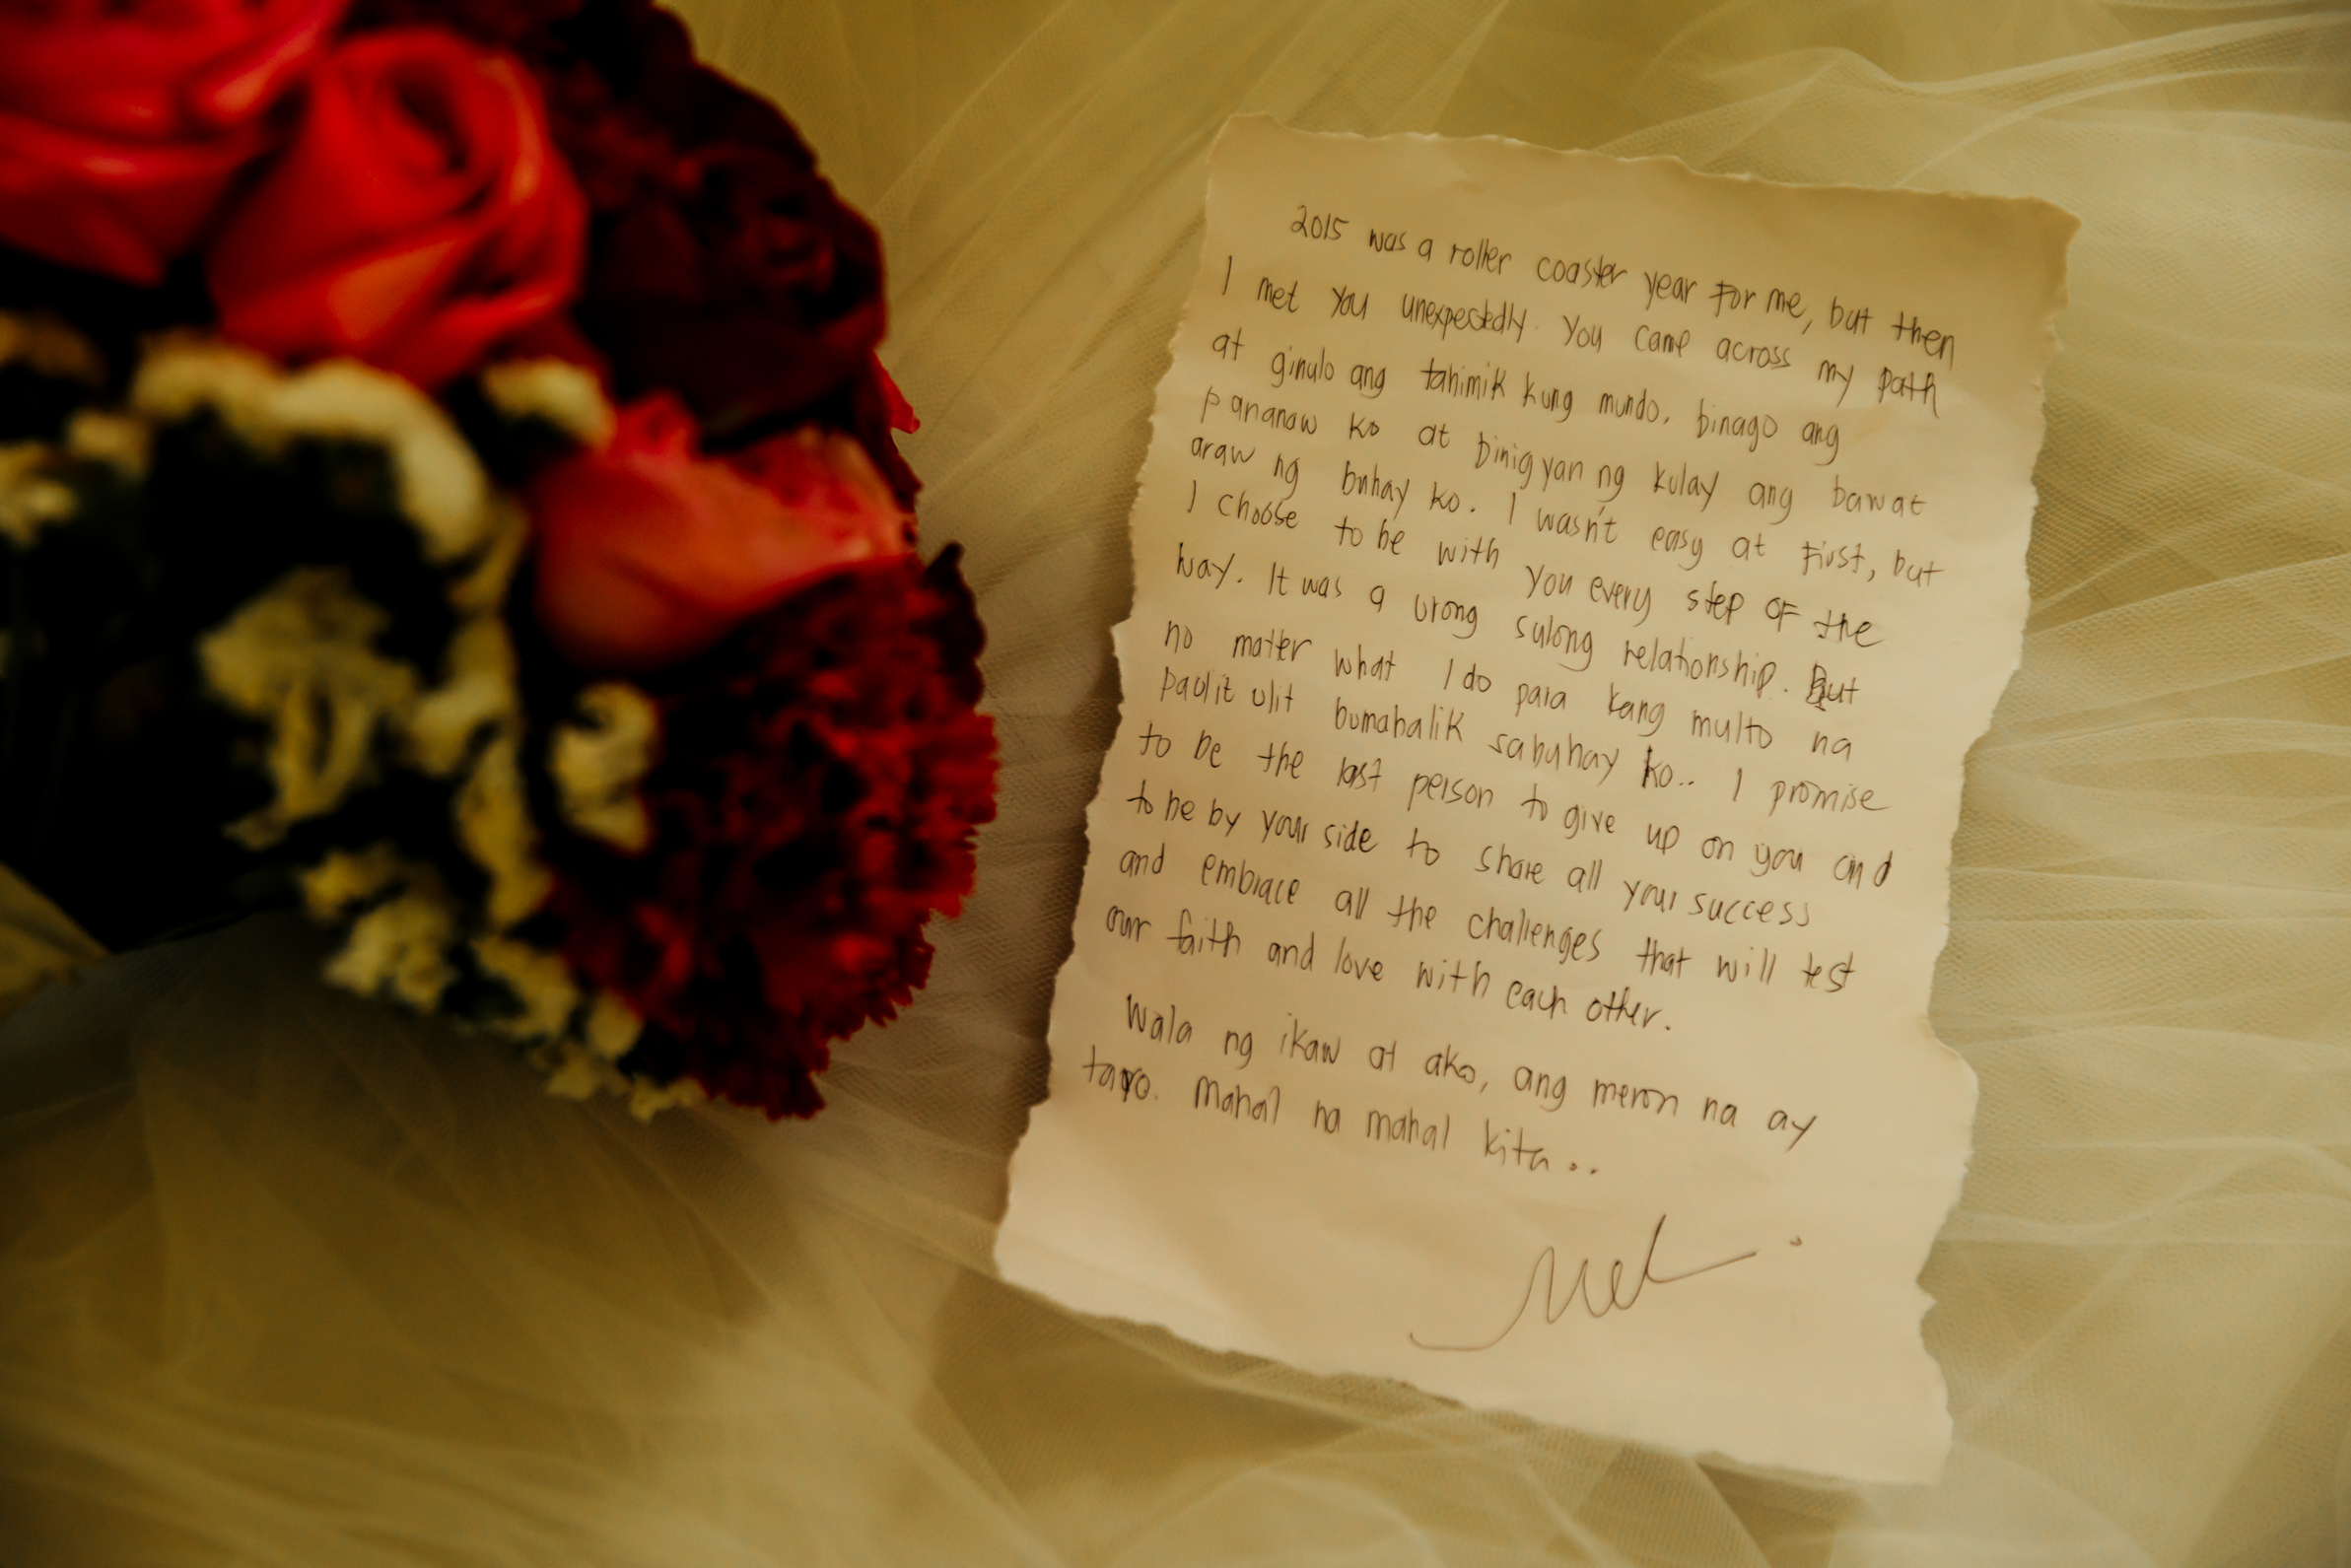 2015 was a roller coaster year For me, but then
I met you unexpectedly. You came across my path
at ginulo ang tahimik kung mundo, binago ang
pananaw ko at binigyan ng kulay ang bawat
araw ng buhay ko. I wasn't easy at First, but
I choose to be with you every step OF the
way. It was a urong sulong relationship. But
no matter what I do para kang multo na
paulit ulit bumabalik sa buhay ko.. I promise
to be the last person to give up on you and
to be by your side to share all your success
and embrace all the challenges that will test
our faith and love with each other.
Wala ng ikaw at ako, ang meron na ay
tayo. Mahal na mahal kita..
Mel